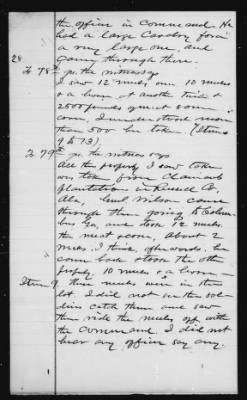 the officer in Command. He
had a large Cavalry force
a very large one, and
going through there.
28
To 78th qs. the witness says
I saw 12 mules, one 10 mules
& a horse at another time &
2500 pounds meat & some
corn, I understood more
than 500 bu taken (Items
9 to 13)
To 79th qs. the witness says
All the property I saw taken
was taken from Claimants
plantation in Russell Co.
Ala, Genl. Wilson came
through there going to Colum-
bus Ga, and took 12 mules
the meat & corn. About 2
weeks, I think, afterwards, he
came back & took the other
property, 10 mules & a horse—
Item 9, these mules were in the
lot. I did not see the sol-
diers catch them and saw
them ride the mules off with
the command. I did not
hear any officer say any-